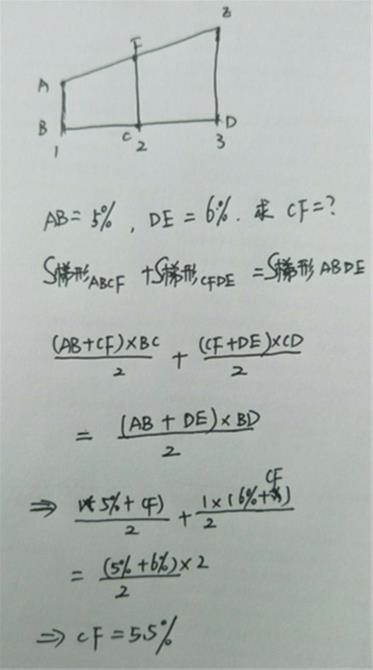 E
F
A
B
C
D
1
2
3
AB=5%, DE=6%. 求 CF=?
S梯形ABCF + S梯形CFDE = S梯形ABDE
(AB+CF)×BC/2 + (CF+DE)×CD/2
= (AB+DE)×BD/2
⇒ 1×(5%+CF)/2 + 1×(6%+CF)/2
= (5%+6%)×2/2
⇒ CF=5.5%